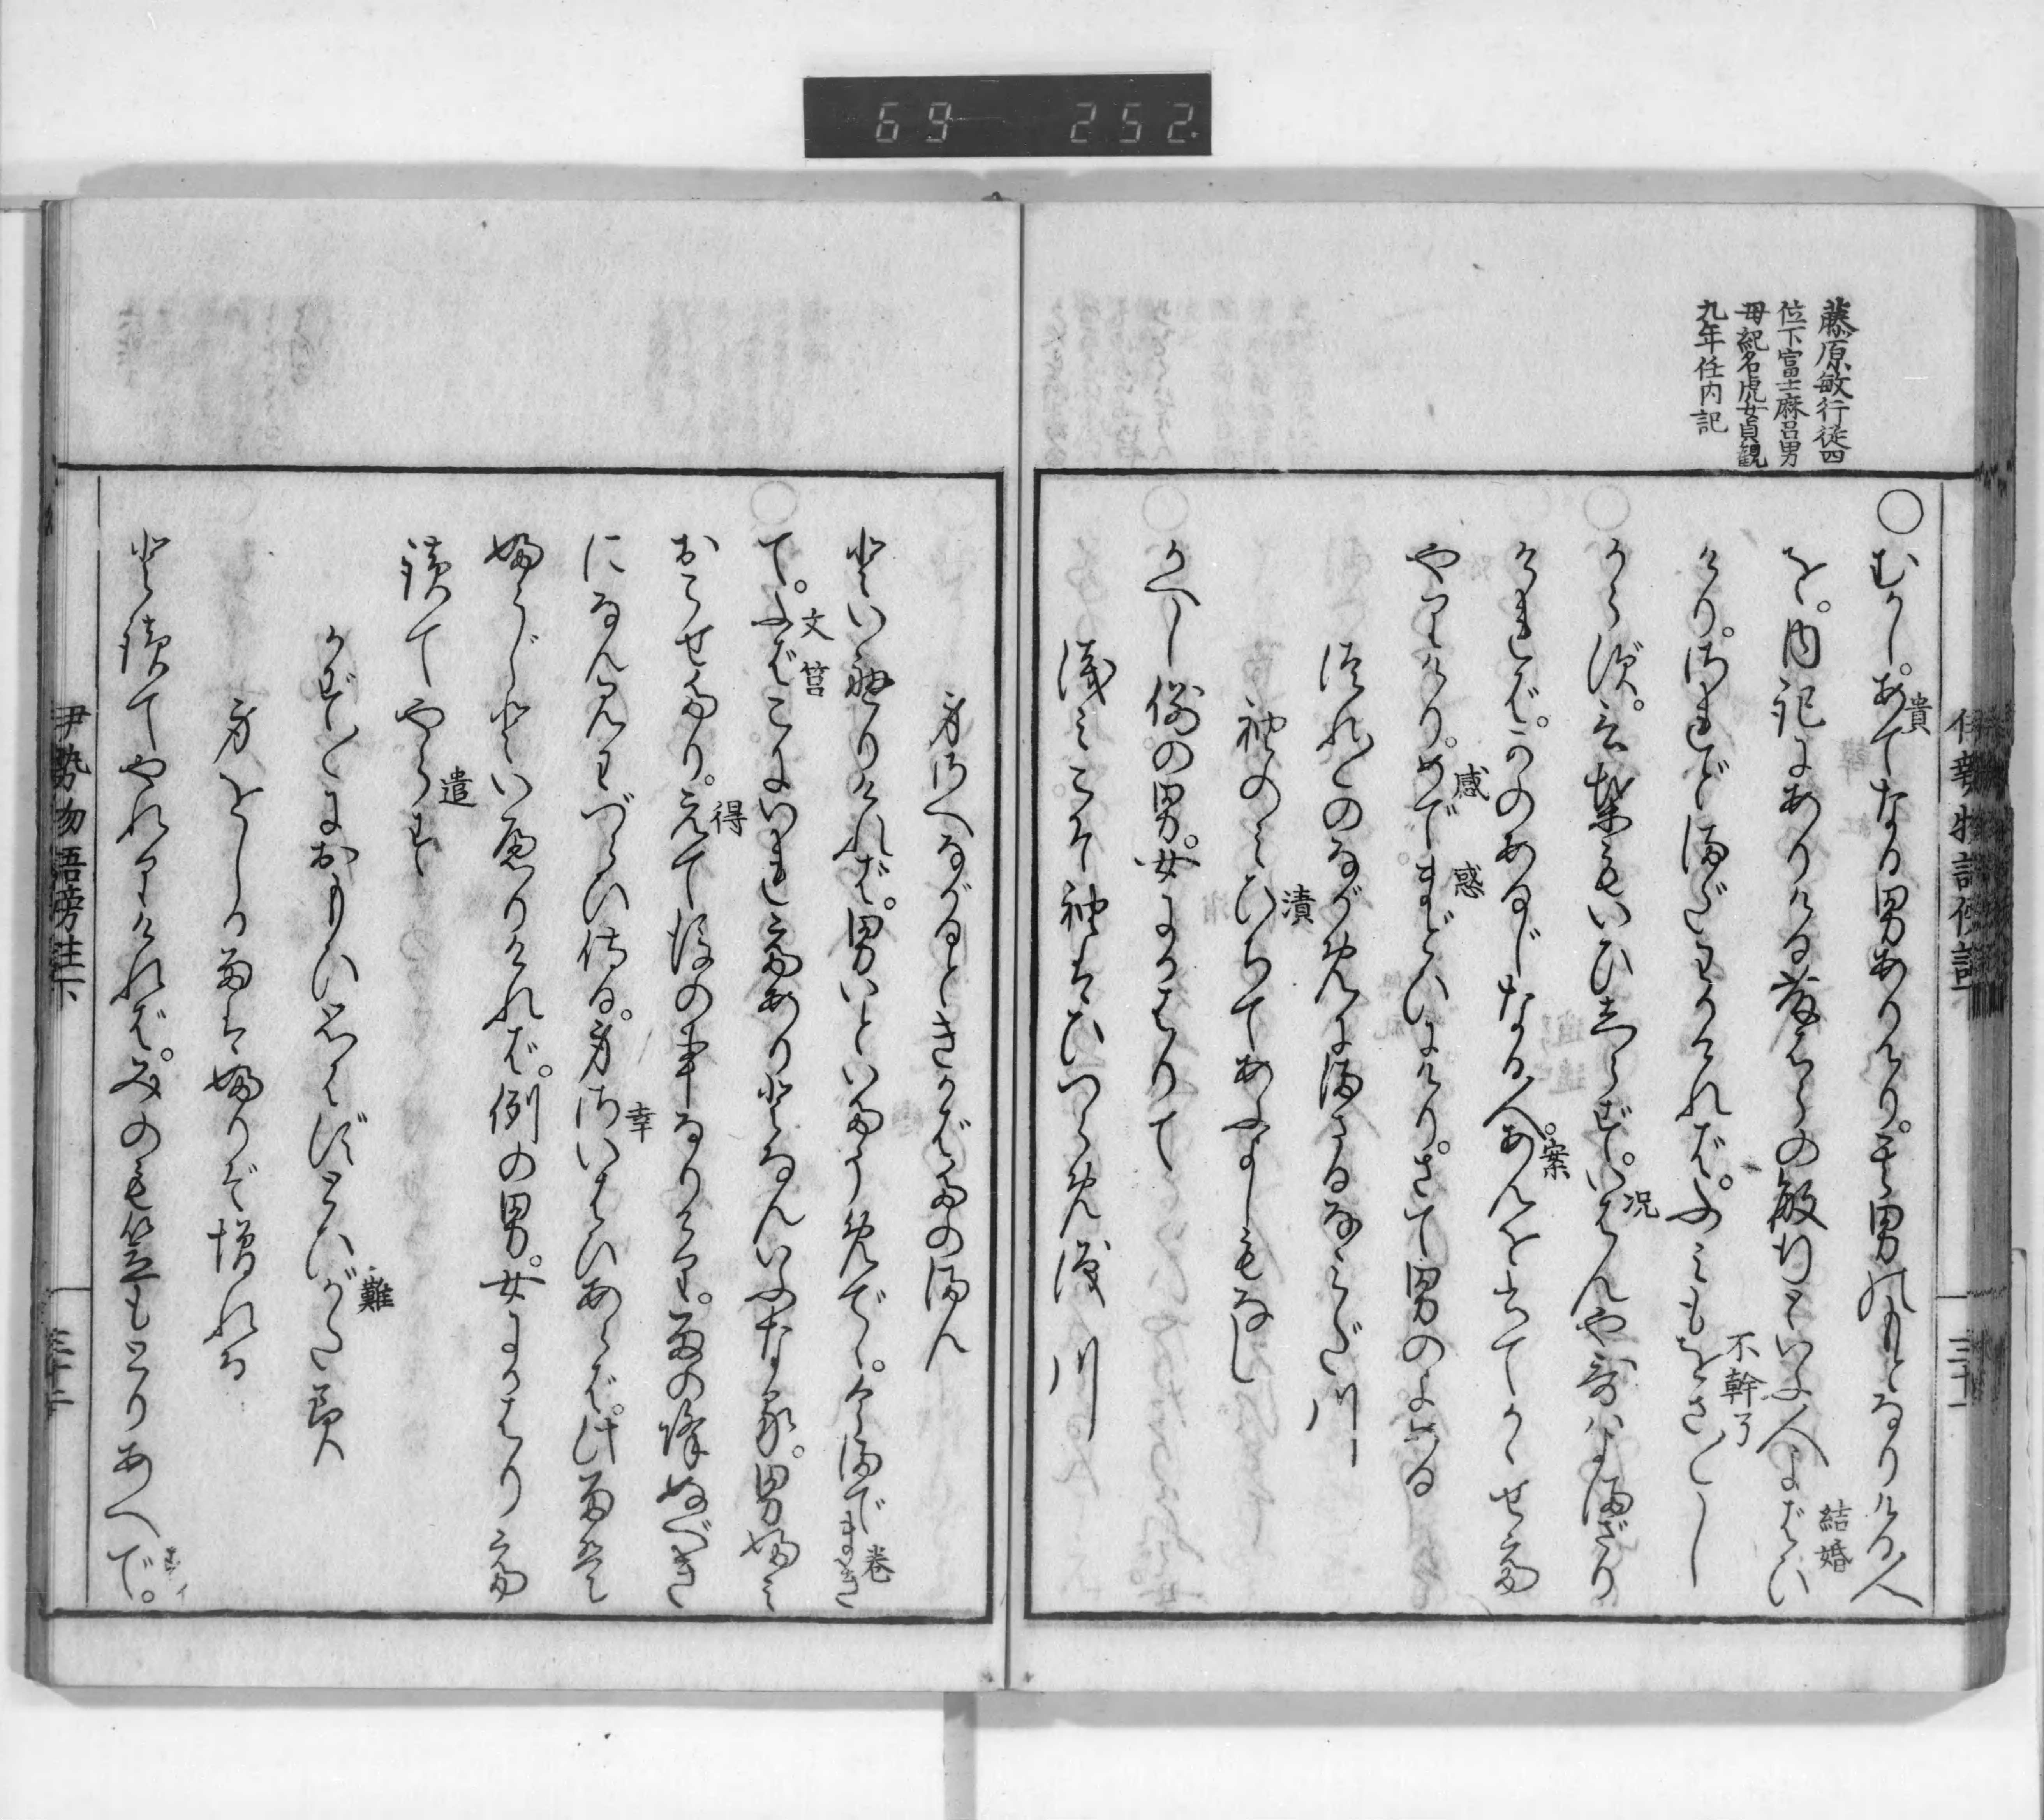 69 252.
藤原敏行従四
位下富士麻呂男
母紀名虎女貞観
九年任内記
○むかし。あてなる男ありけり。其男の許なりける人
貴
を。内記にありける藤原の敏行といふ人よばひ
結婚
けり。されど満だわかければ。ふみもをさ〳〵し
不幹了
からず。言葉もいひしらず。いはんや哥はよ満ざり
况
ければ。かのあるじなる人。あんをかきてかゝせて
案
やりけり。めでまどひにけり。さて男のよめる
感 惑
徒れ〳〵のながめに満さるなみだ川
袖のみひちてあふよしもなし
漬
かへし例の男。女にかはりて
浅みこそ袖はひつらめ涙川
身さへながるときかばたの満ん
といへりければ。男いといたうめでゝ。今満でまき
巻
て。ふばこにいれてありとなんいふなる。男ふみ
文筥
おこせたり。えて後の事なりけり。雨の降ぬべき
得
になん見わづらひ侍る。身さいはひあらば。此雨は
幸
ふらじといへりければ。例の男。女にかはり
読てやらす
遣
かず〳〵におもひ思はずとひがた美
難
身をしる雨はふりぞ増れる
と読てやれりければ。みのも笠もとりあへで。
伊勢物語傍註下
三十二
三十一